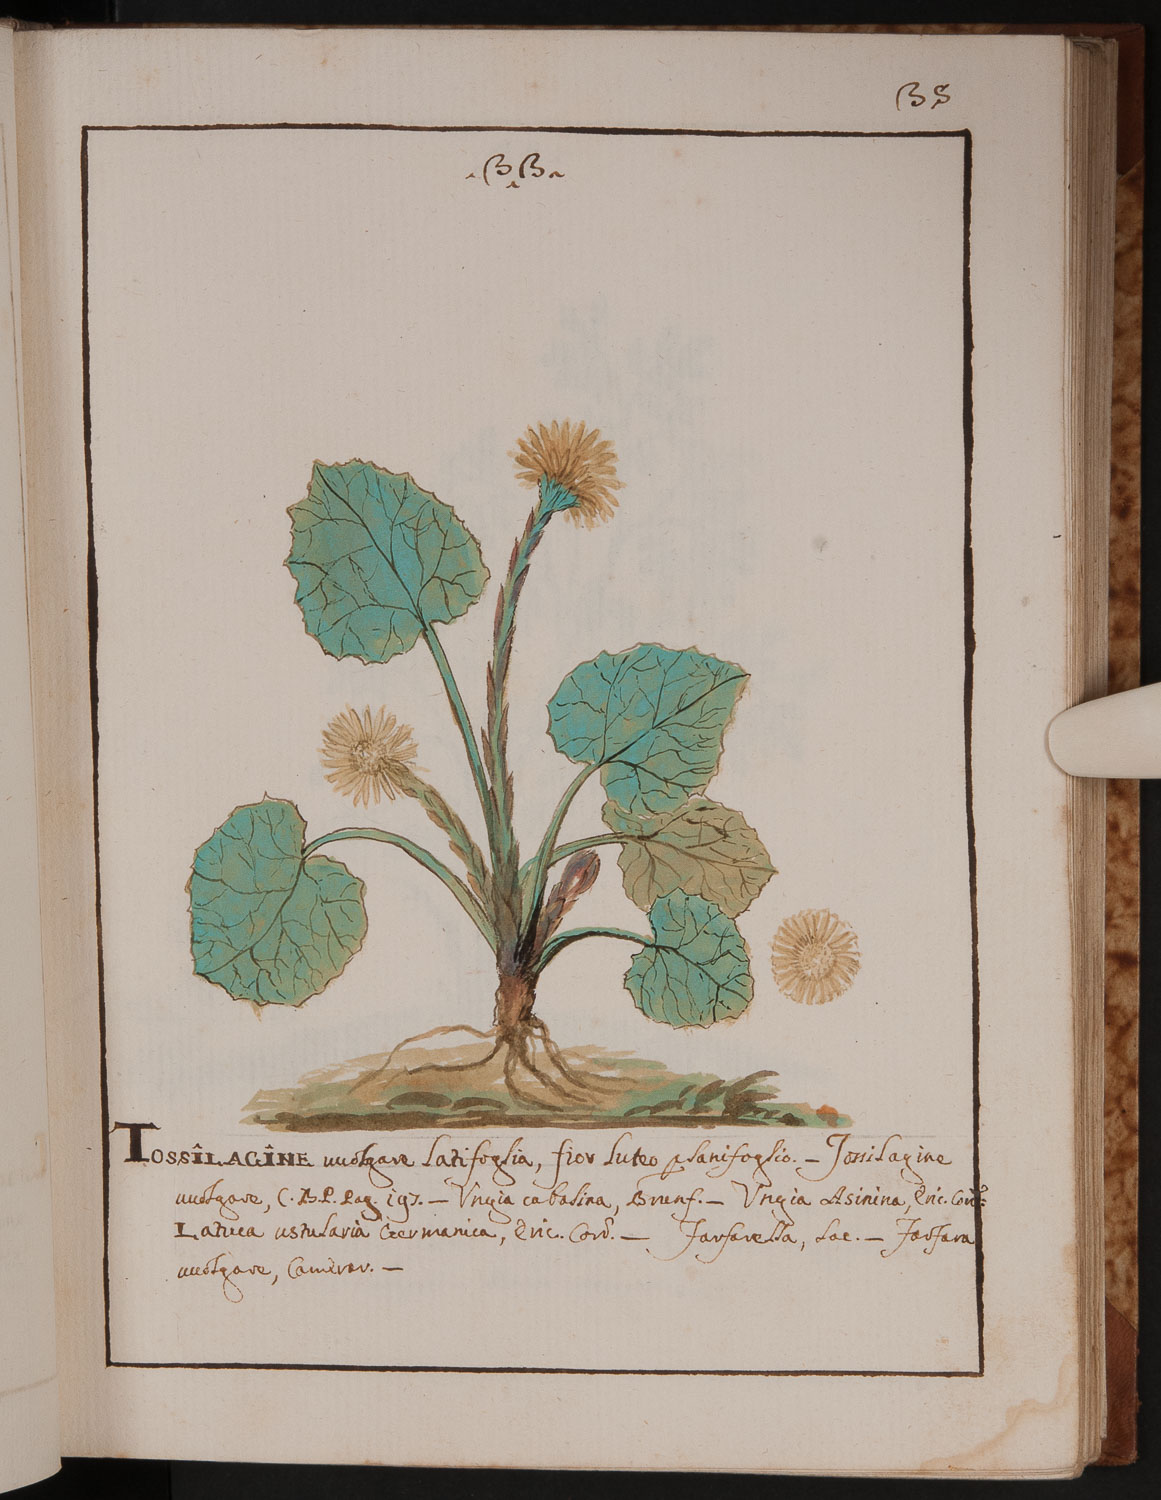 BS
.BB.
TOSSILAGINE vuolgare latifoglia, fior luteo planifoglio. – Tossilagine
vuolgare, C.B.P. Pag. 197. – Vngia cabalina, Brunf. – Vngia Asinina, Eric. Cord:
Latuca ustularia Germanica, Eric. Cord. – Farfarella, Lac. – Farfara
vuolgare, Camerar. –